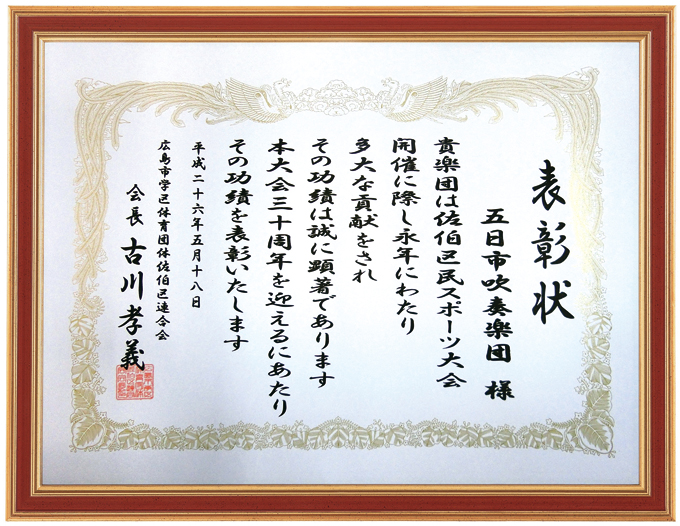 表彰状
五日市吹奏楽団 様
貴楽団は佐伯区民スポーツ大会
開催に際し永年にわたり
多大な貢献をされ
その功績は誠に顕著であります
本大会三十周年を迎えるにあたり
その功績を表彰いたします
平成二十六年五月十八日
広島市学区体育団体佐伯区連合会
会長 古川孝義